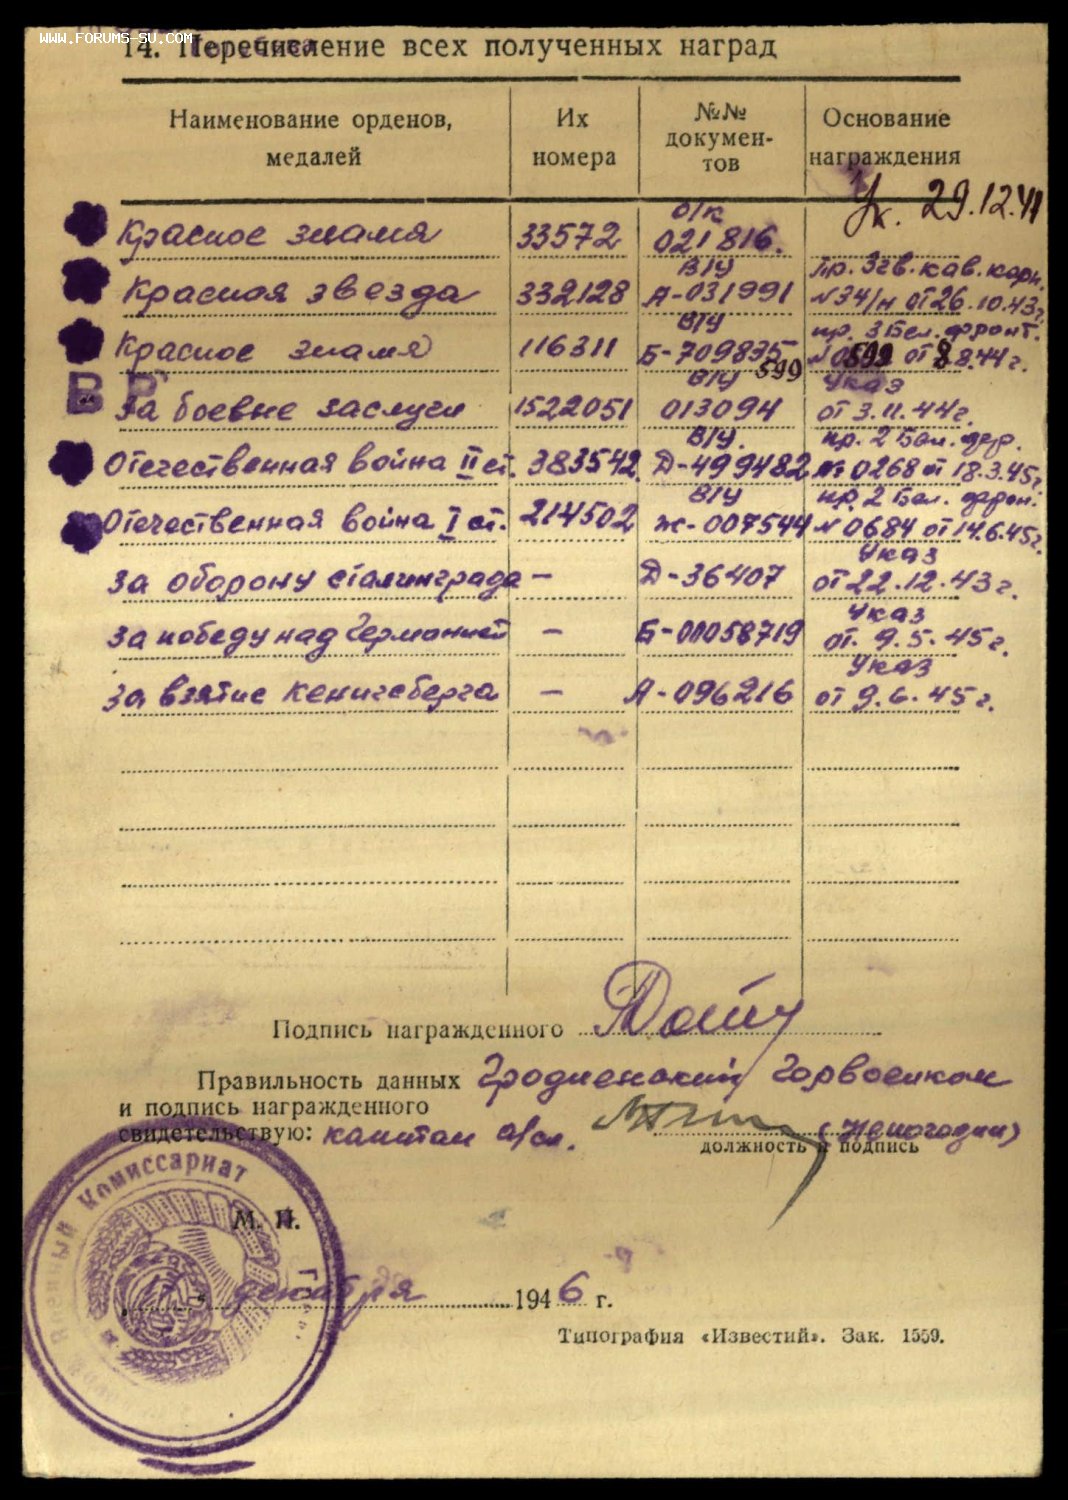 WWW.FORUMS-SU.COM
14. Перечисление всех полученных наград
Наименование орденов, медалей
Их номера
№№ документов
Основание награждения
Ук. 29.12.41
Красное знамя 33572 о/к 021816.
Красная звезда 332128 в/у А-031991 пр. 3 гв. кав. корп. №34/н от 26.10.43г.
Красное знамя 116311 в/у Б-709835 599 пр. 3 Бел. фронт. №0599 от 8.8.44г.
ВР
За боевые заслуги 1522051 в/у 013094 Указ от 3.11.44г.
Отечественная война II ст. 383542. в/у. Д-499482 пр. 2 Бел. фр. №0268 от 18.3.45г.
Отечественная война I ст. 214502 в/у Ж-007544 пр. 2 Бел. фрон. №0684 от 14.6.45г.
За оборону Сталинграда – Д-36407 Указ от 22.12.43г.
За победу над Германией – Б-01058719 Указ от 9.5.45г.
За взятие Кенигсберга – А-096216 Указ от 9.6.45г.
Подпись награжденного
Правильность данных Гродненский Горвоенком
и подпись награжденного
свидетельствую: капитан а/сл.
должность и подпись
Военный Комиссариат
М. П.
декабря 1946 г.
Типография «Известий». Зак. 1559.